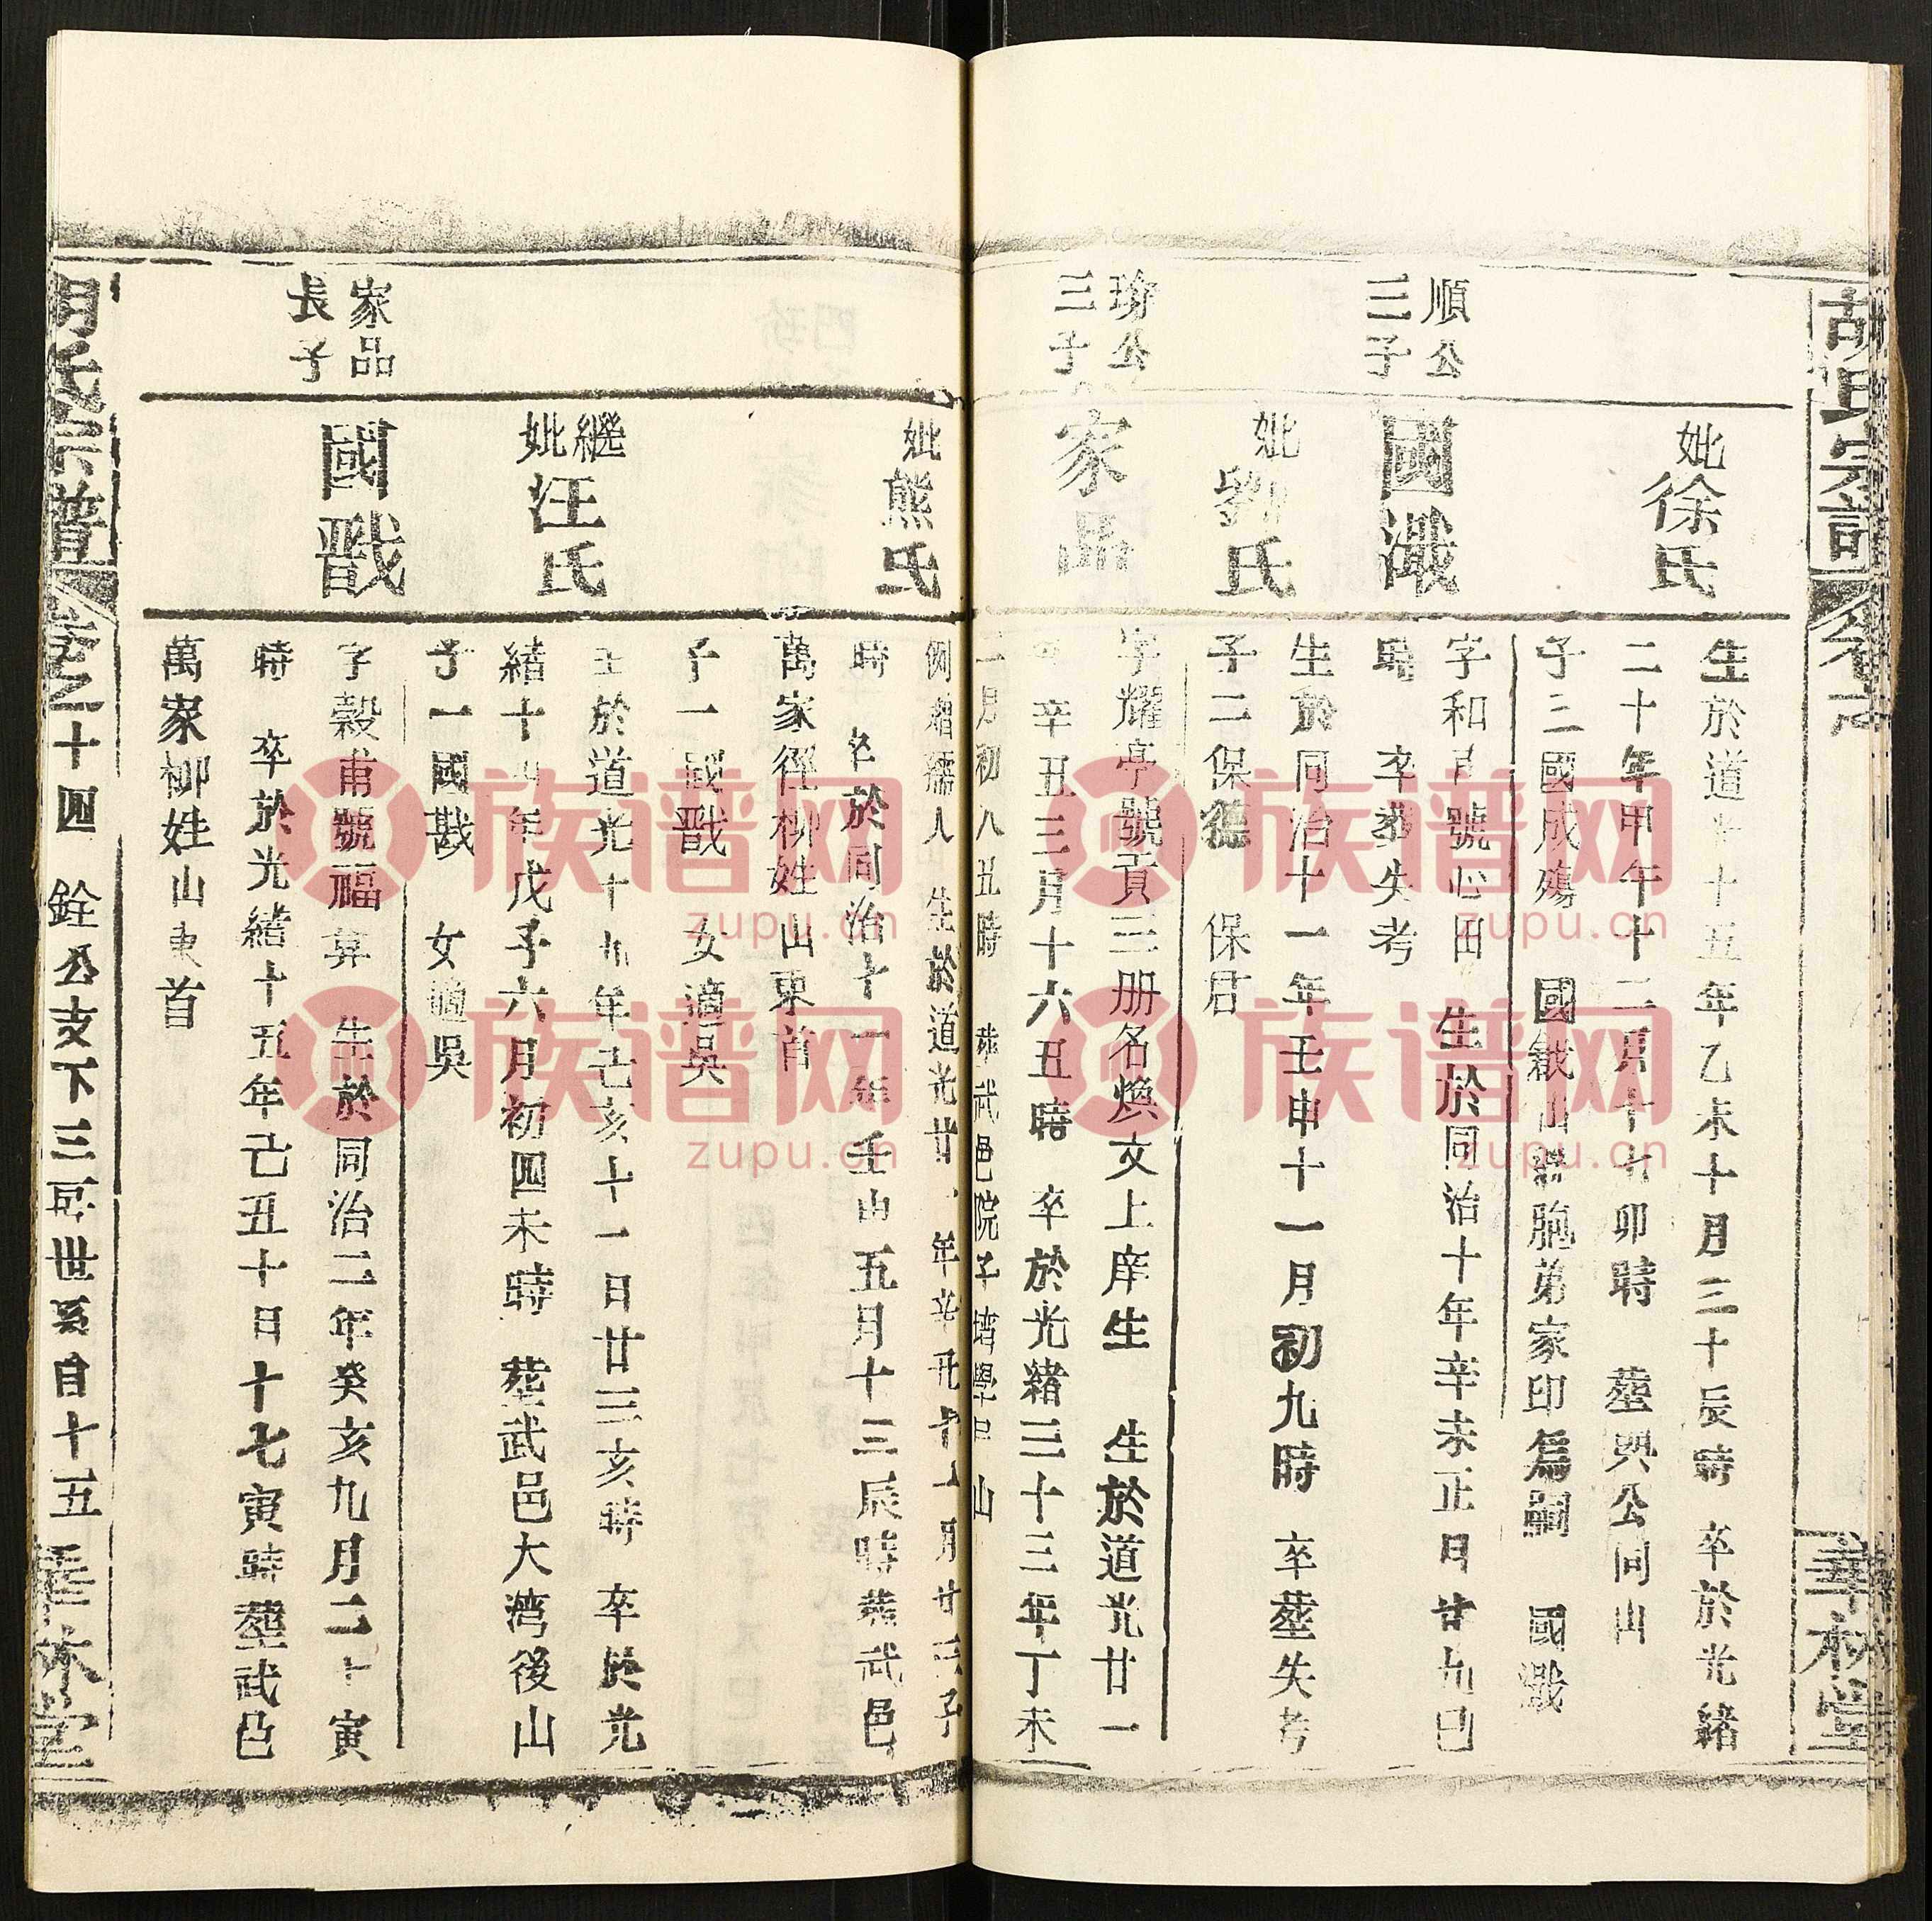 胡氏宗譜
華林堂
妣徐氏
生於道光十五年乙未十月三十辰時 卒於光緒
二十年甲午十二月十七卯時 塟興公同山
子三國成殤 國鉞山 胞弟家印為嗣 國濈
順公
三子
國濈
字和 號心田 生於同治十年辛未正月廿九巳
時 卒塟失考
妣劉氏
生於同治十一年壬申十一月初九時 卒塟失考
子二保德 保君
瑜公
三子
家品
字耀亭號貢三册名煥文上庠生 生於道光廿一
年辛丑三月十六丑時 卒於光緒三十三年丁未
二月初八丑時 塟武邑院子塆學 山
妣熊氏
例贈孺人 生於道光廿 年辛丑 月廿 子
時 卒於同治十一年壬申五月十三辰時塟武邑
萬家徑柳姓山東首
子一國戩 女適吳
繼
妣汪氏
生於道光十九年己亥十一日廿三亥時 卒於光
緒十四年戊子六月初四未時 塟武邑大灣後山
子一國戡 女適吳
家品
長子
國戩
字穀甫號福算 生於同治二年癸亥九月二十寅
時 卒於光緒十五年己丑十日十七寅時塟武邑
萬家柳姓山東首
胡氏宗譜 卷之十四 銓公支下三房世系自十五 華林堂
族谱网
zupu.cn
族谱网
zupu.cn
族谱网
zupu.cn
族谱网
zupu.cn